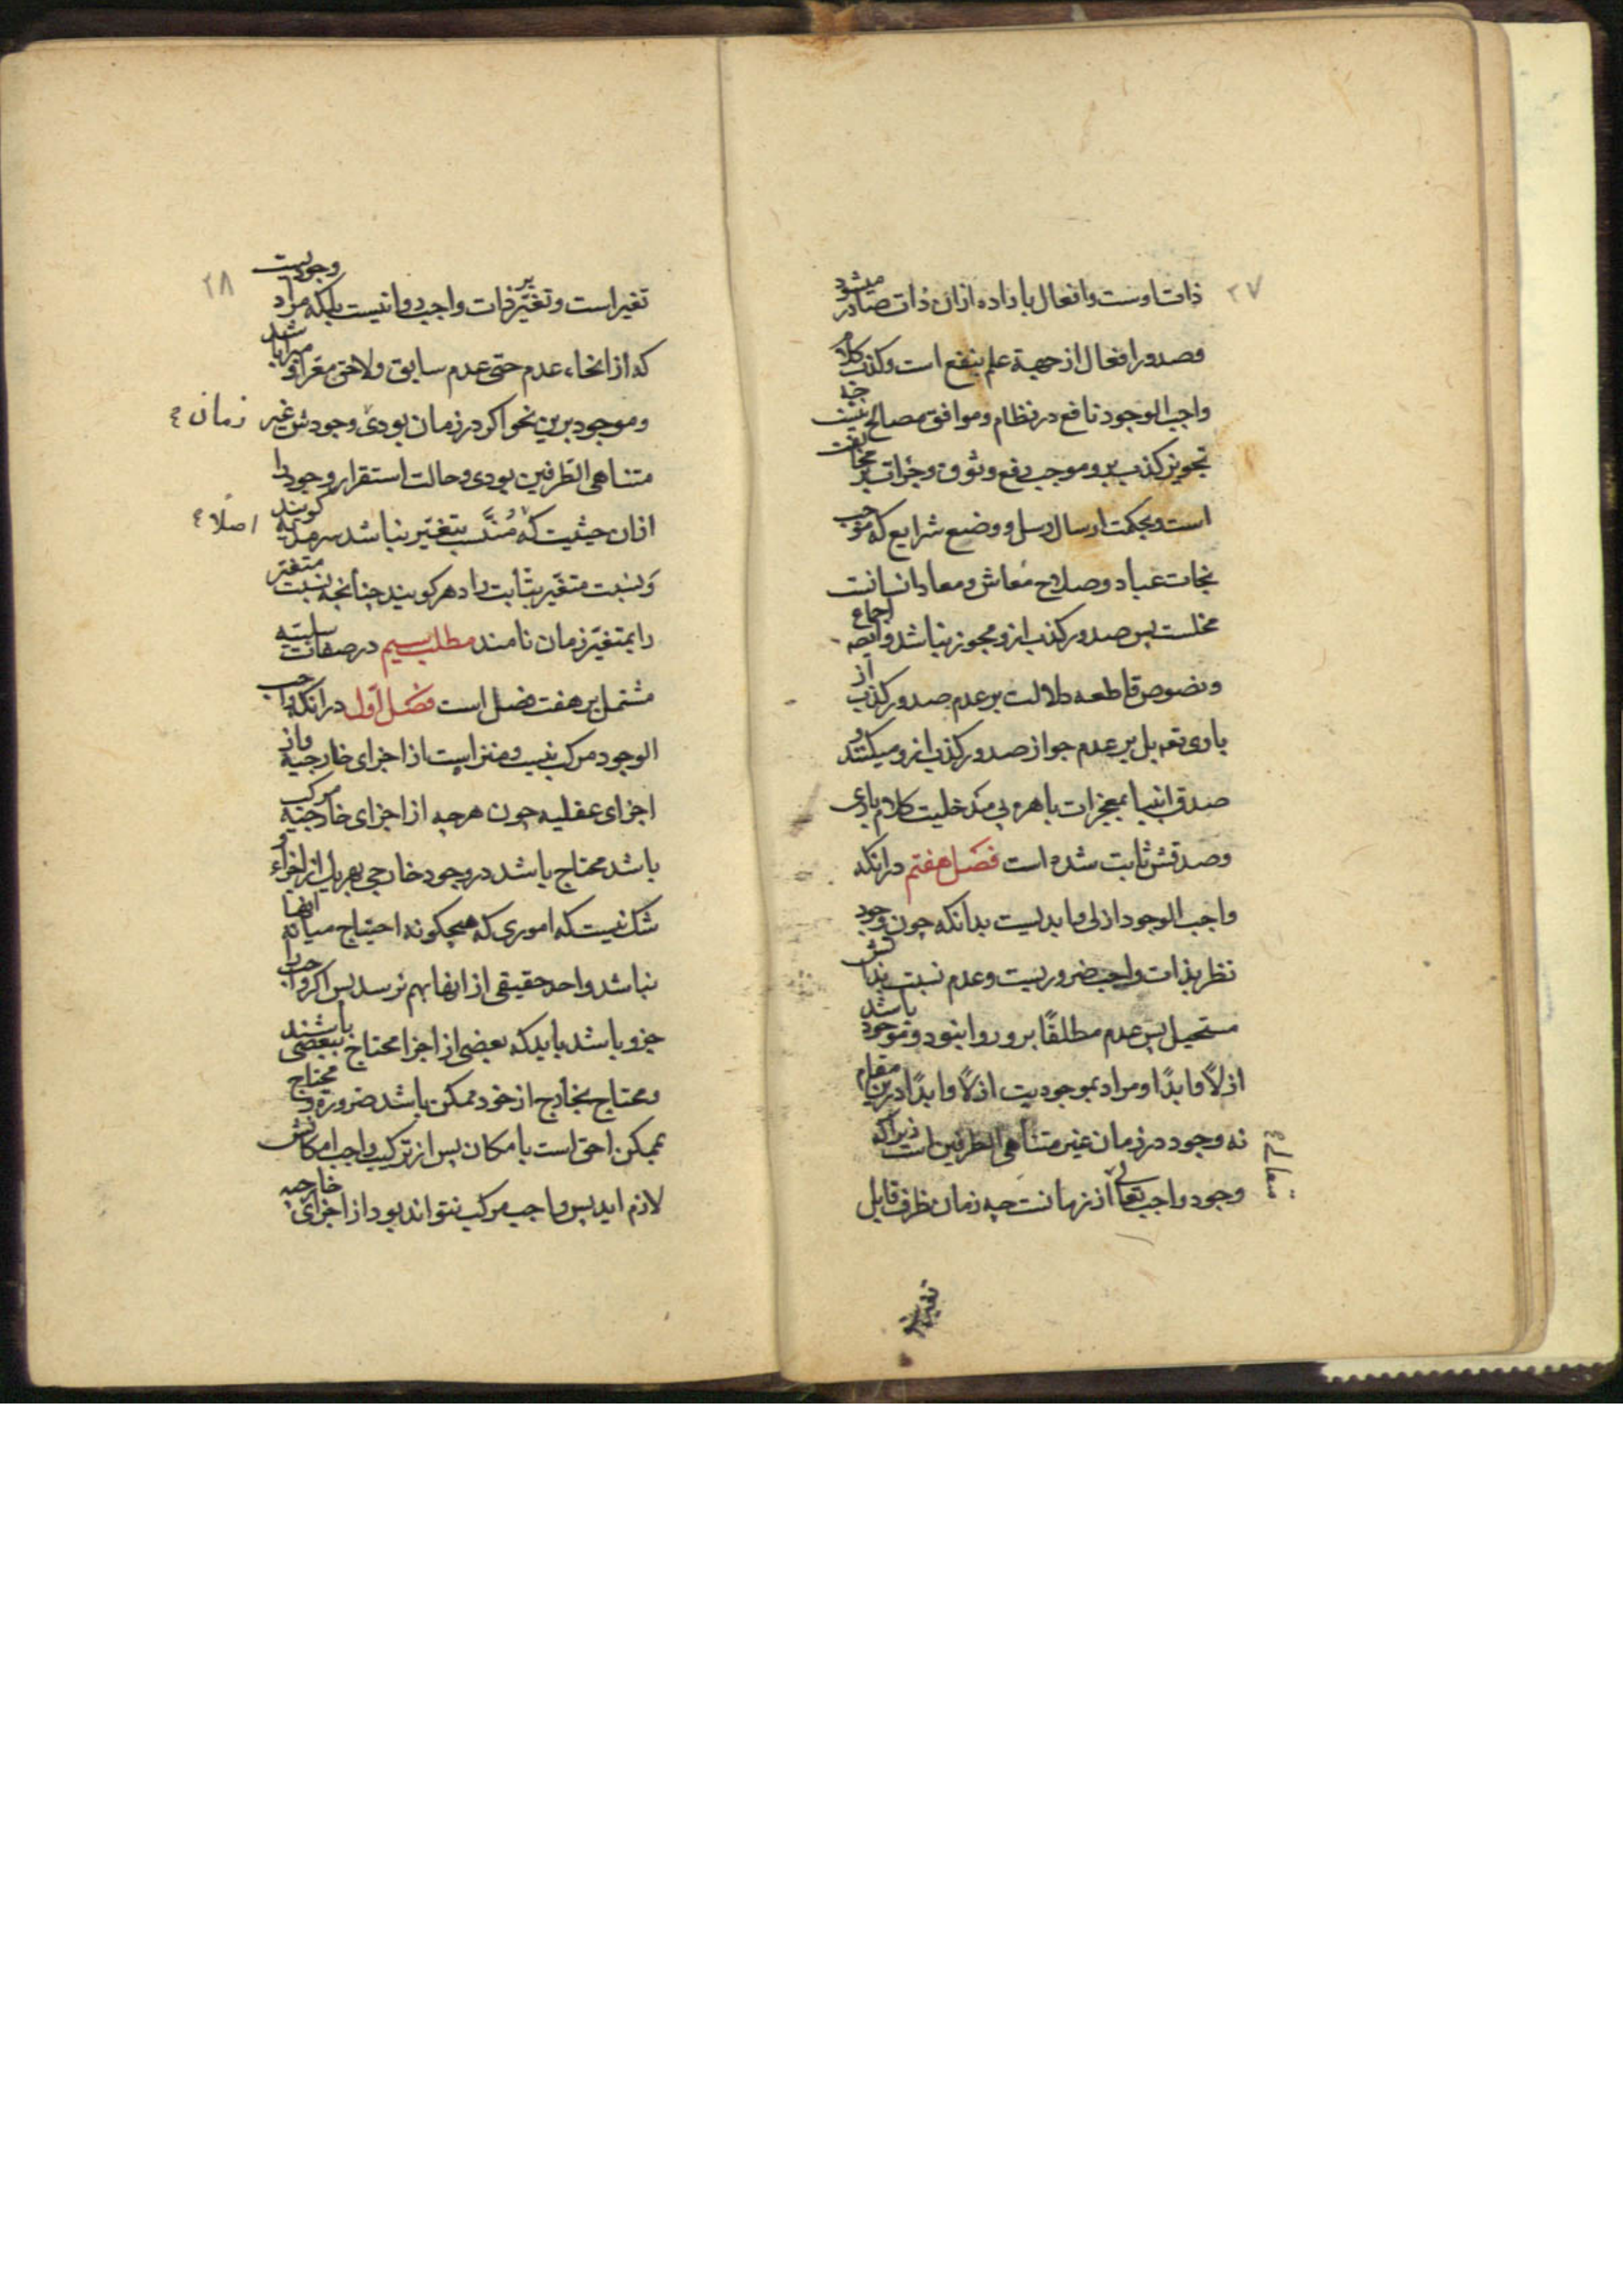 ۲۷
ذات اوست و افعال باراده ازان ذات صادر میشود
و صدور افعال از جهة علم بنفع است و کذب کلام
واجب الوجود نافع در نظام و موافق مصالح نیست چه
تجویز کذب برو موجب رفع وثوق و جرات بر مخالفت
است و بحکمت ارسال رسل و وضع شرایع که موجب
نجات عباد و صلاح معاش و معاد انسانست
مخلست پس صدور کذب ازو مجوز نباشد و ایضه اجماع
و نصوص قاطعه دلالت بر عدم صدور کذب از
باری تعه بل بر عدم جواز صدور کذب ازو میکنند و
صدق انبیا بمعجزات باهره بی مدخلیت کلام باری
و صدقش ثابت شده است فصل هفتم در انکه
واجب الوجود ازلی و ابدیست بدانکه چون وجود
نظر بذات واجب ضروریست و عدم نسبت بذاتش
مستحیل پس عدم مطلقًا برو روا نبود و موجود باشد
ازلًا و ابدًا و مراد بموجودیت ازلًا و ابدًا درین مقام
نه وجود در زمان غیر متناهی الطرفین است زیرا که
وجود واجب تعالی از زمانست چه زمان ظرف قابل
متعالی
تغیر
۲۸
تغیر است و تغیّر بر ذات واجب روا نیست بلکه مراد وجودیست
که از انحاء عدم حتی عدم سابق و لاحق معرا و مبرا باشد
و موجود برین نحو اکر در زمان بودی وجودش غیر زمان
متناهی الطرفین بودی و حالت استقرار وجود را
ازان حیثیت که مُنتَسب بتغیّر نباشد سرمدیه کویند اصلًا
و نسبت متغیّر بثابت را دهر کویند چنانچه نسبت متغیر
را بمتغیّر زمان نامند مطلب سیم در صفات سلبیه
مشتمل بر هفت فصل است فصل اول در انکه واجب
الوجود مرکب نیست و منزه است از اجزای خارجیه و از
اجزای عقلیه چون هر چه از اجزای خارجیه مرکب
باشد محتاج باشد در وجود خارجی بهر یک از اجزاء و
شک نیست که اموری که هیچکونه احتیاج میانه انها
نباشد واحد حقیقی از انها بهم نرسد پس اکر واجب را
جزو باشد باید که بعضی از اجزا محتاج ببعضی باشند
و محتاج بخارج از خود ممکن باشد ضرورة و محتاج
بممکن احق است بامکان پس از ترکیب واجب امکانش
لازم اید پس واجب مرکب نتواند بود از اجزای خارجیه